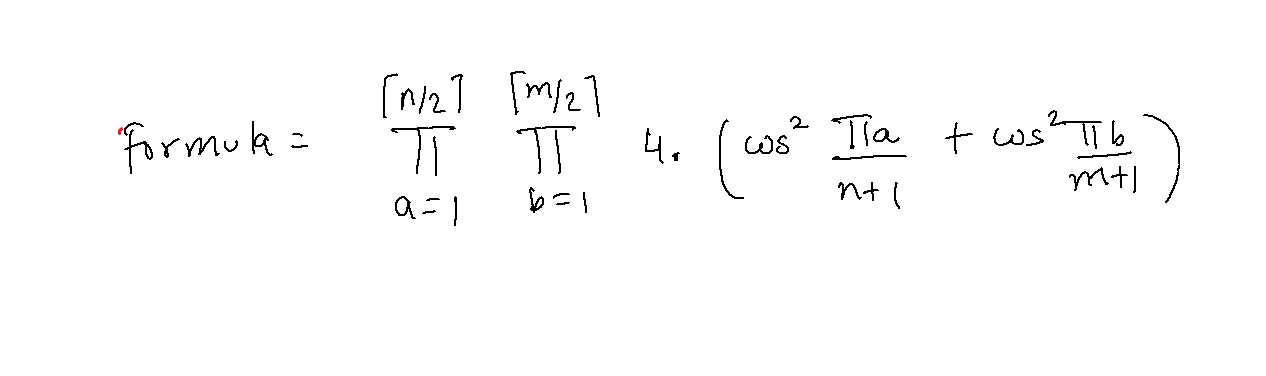 formula = ⌈n/2⌉∏a=1 ⌈m/2⌉∏b=1 4. (cos² πa/n+1 + cos² πb/m+1)